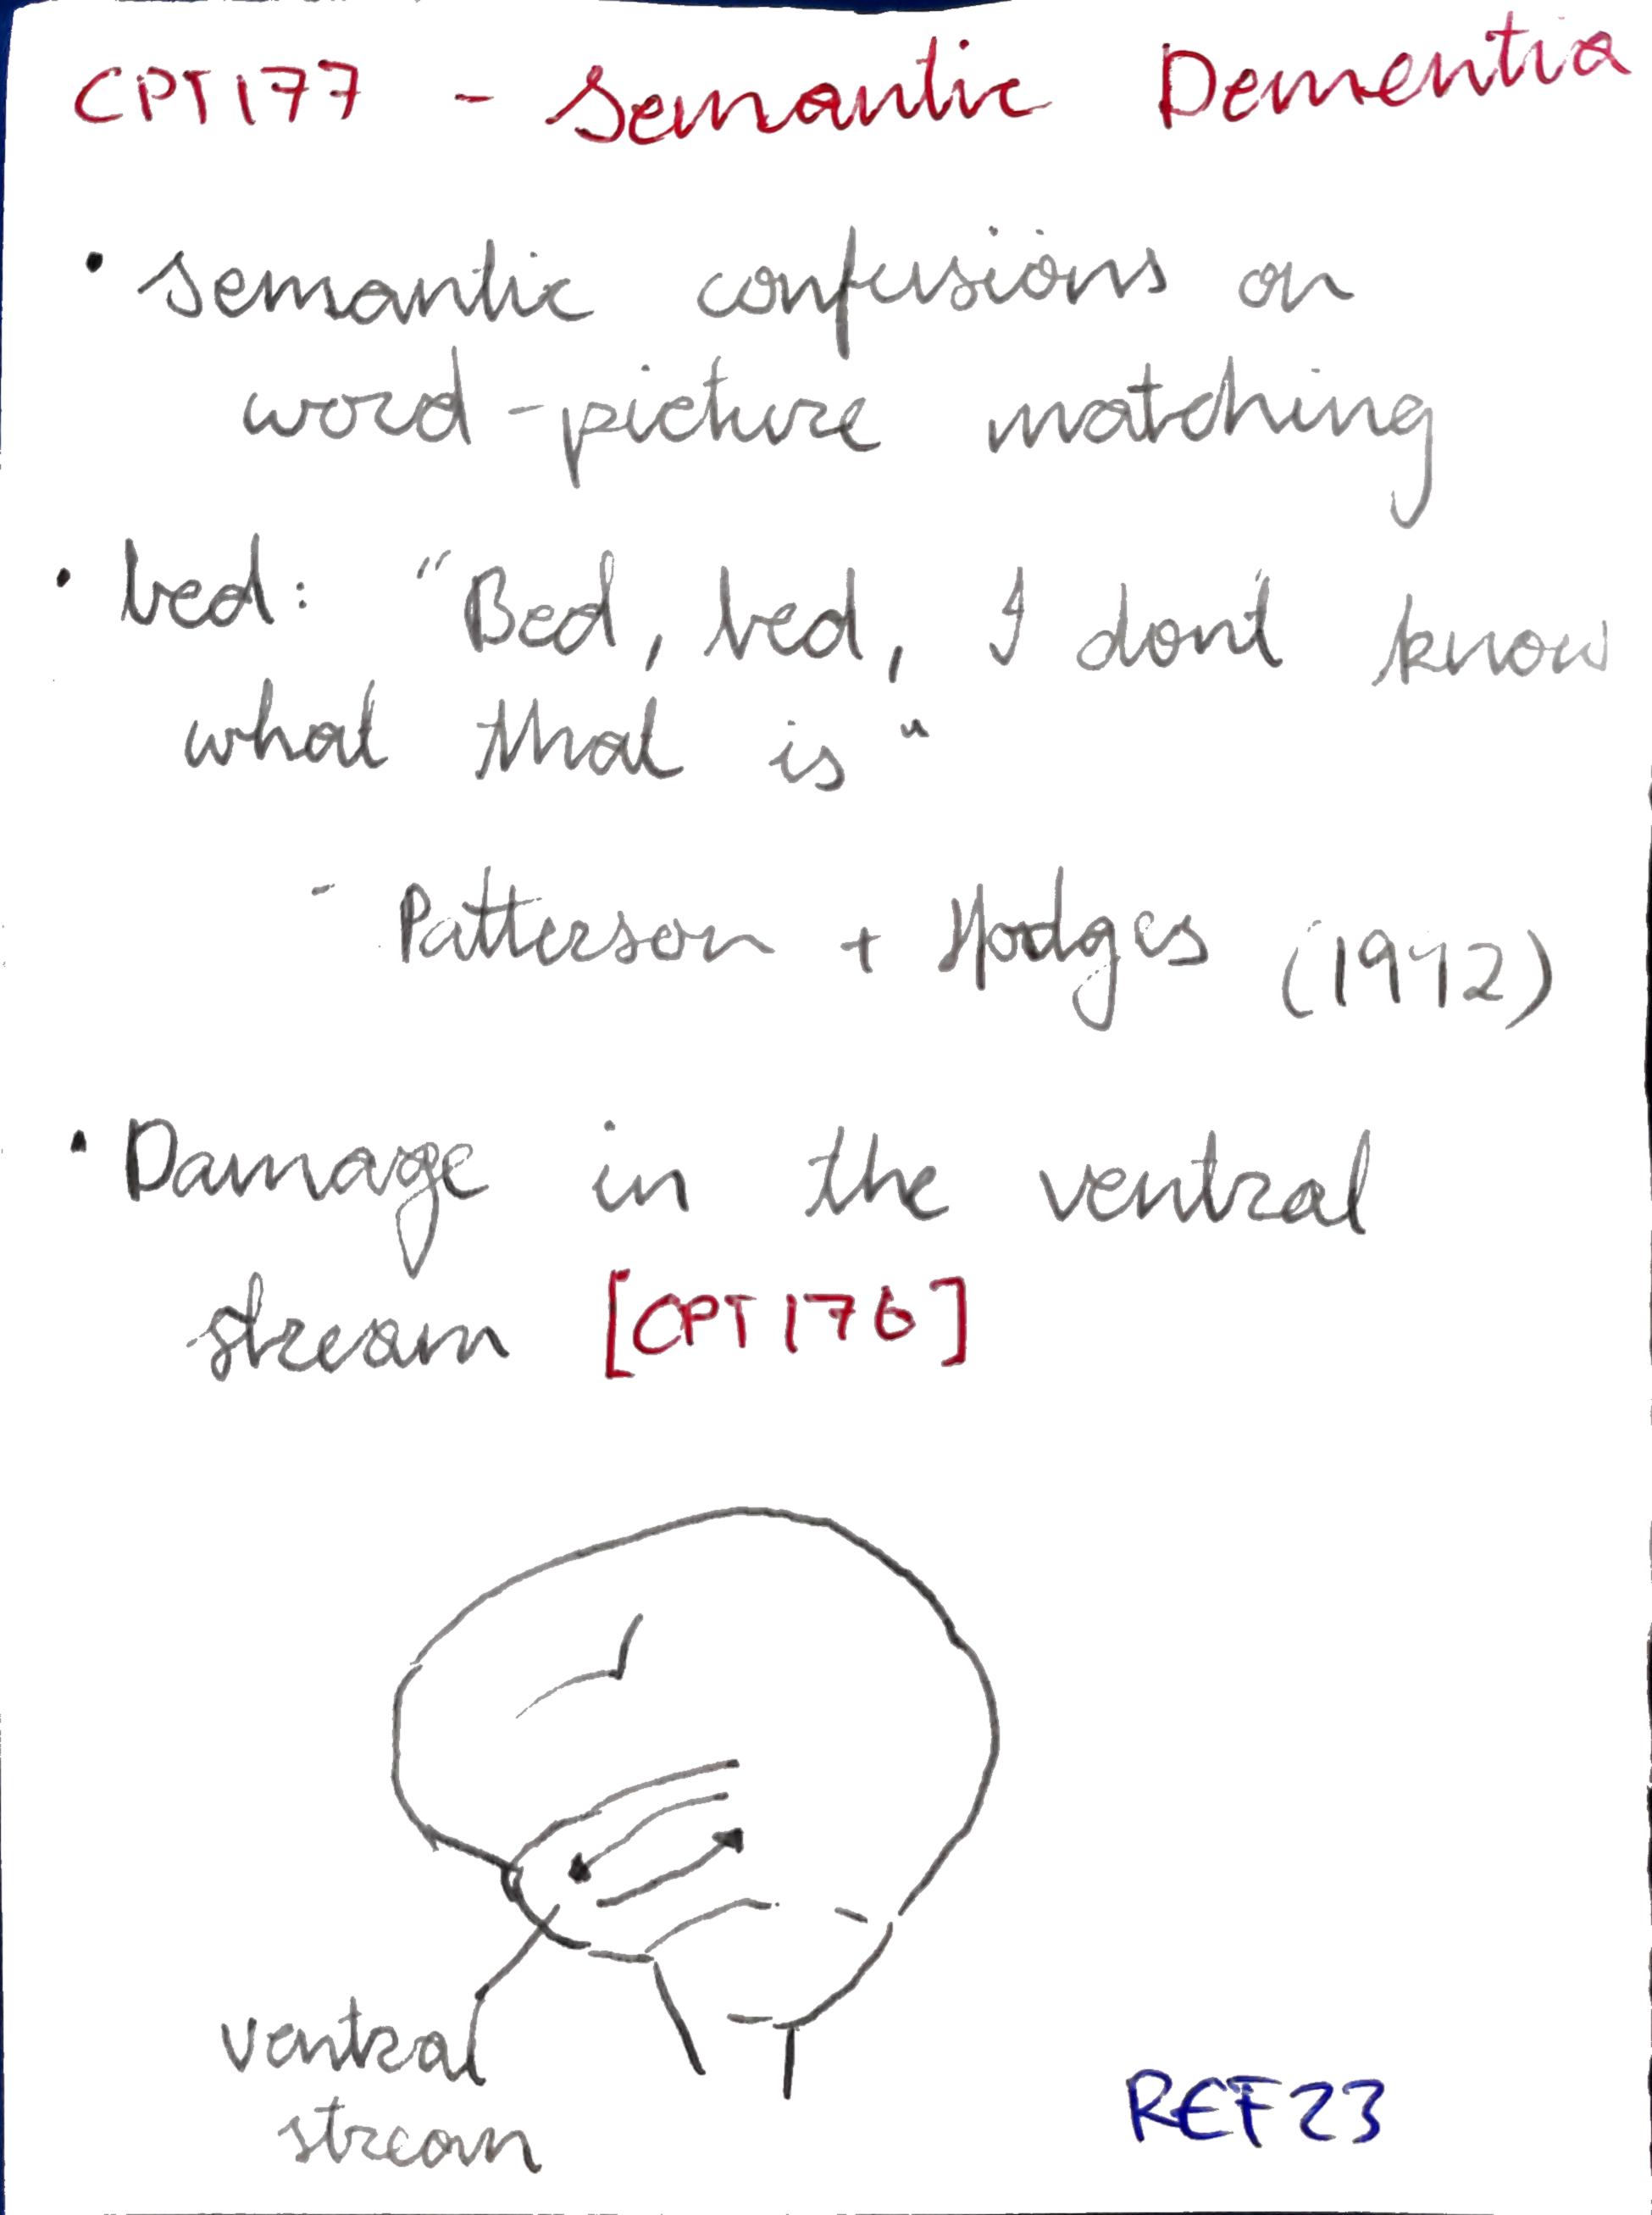 CPT177 - Semantic Dementia
• semantic confusions on
word-picture matching
• bed: "Bed, bed, I don't know
what that is"
- Patterson + Hodges (1992)
• Damage in the ventral
stream [CPT176]
ventral
stream
REF23